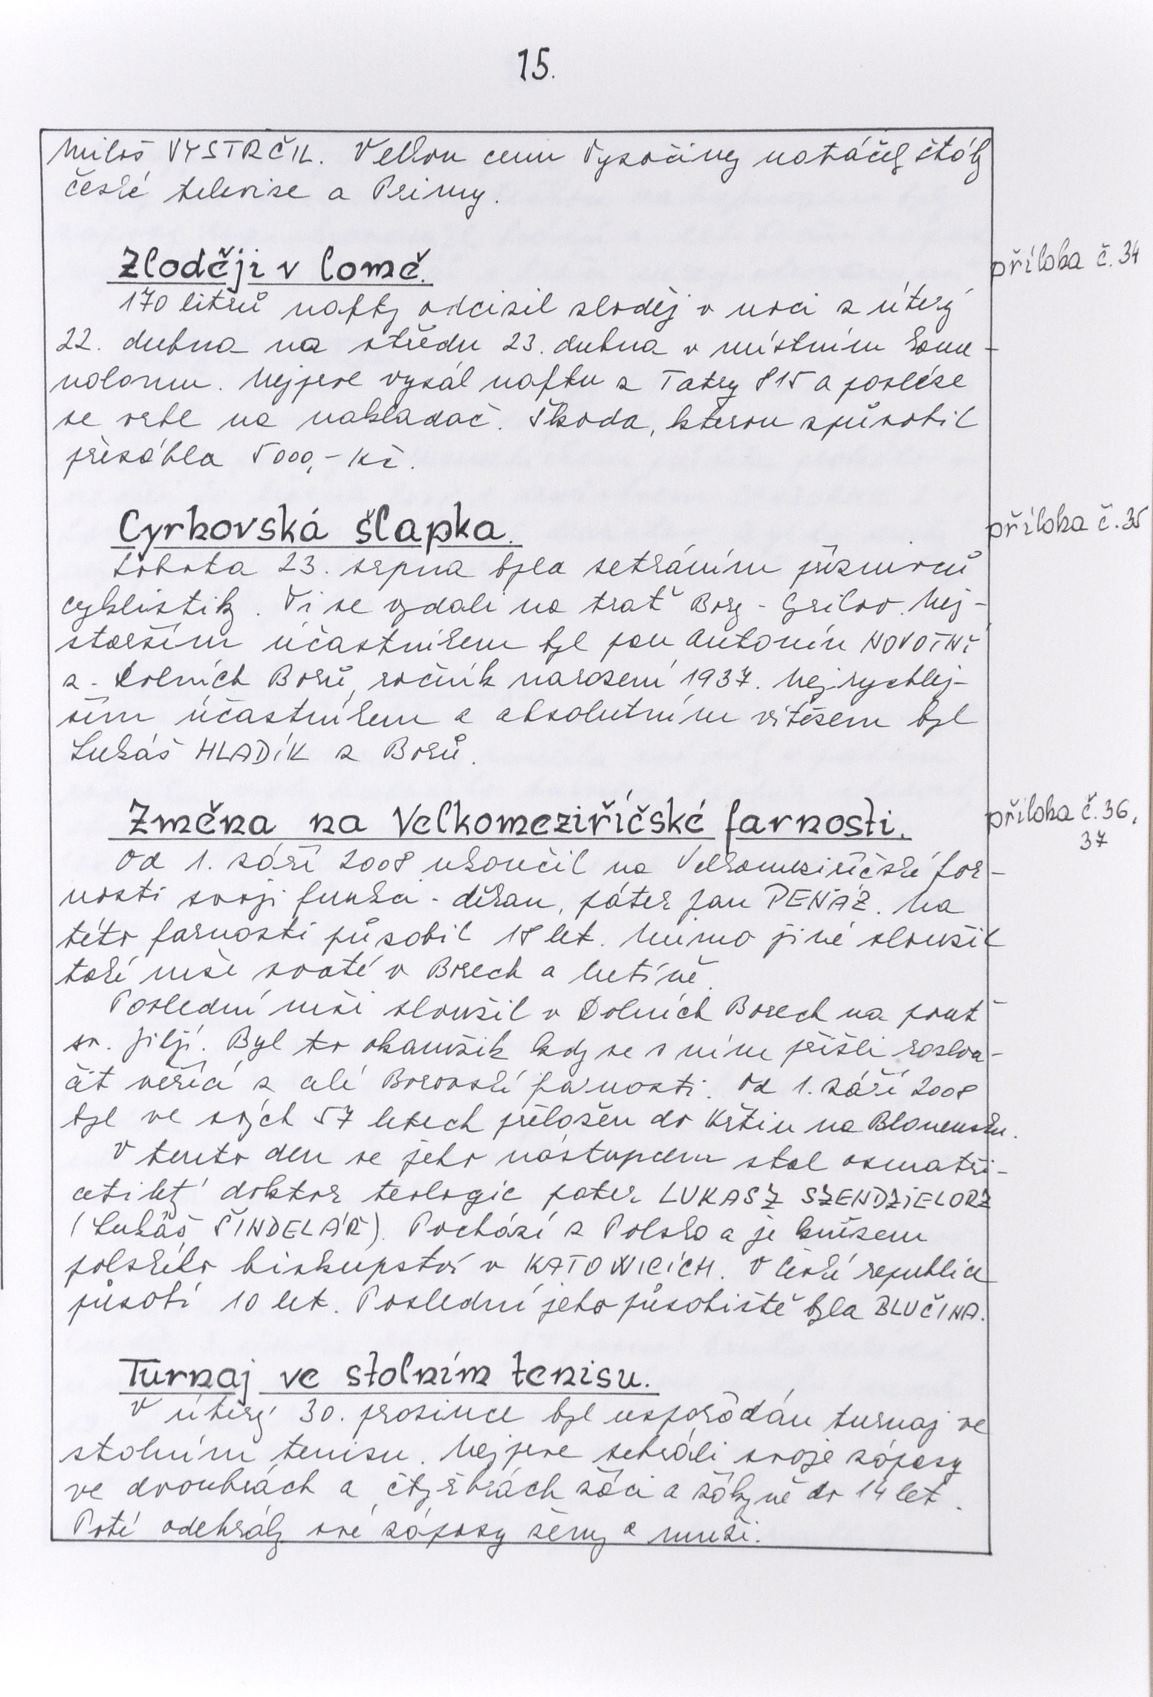 15.
Miloš VYSTRČIL. Velkou cenu Vysočiny natáčely štáby
české televize a Primy.
Zloději v lomě.
příloha č. 34
170 litrů nafty odcizil zloděj v noci z úterý
22. dubna na středu 23. dubna v místním kame-
nolomu. Nejprve vysál naftu z Tatry 815 a posléze
se vrhl na nakladač. Škoda, kterou způsobil
přesáhla 5000,- Kč.
Cyrhovská šlapka.
příloha č. 35
Sobota 23. srpna byla setkáním příznivců
cyklistiky. Ti se vydali na trať Bory - Grilov. Nej-
starším účastníkem byl pan Antonín NOVOTNÝ
z Dolních Borů, ročník narození 1937. Nejrychlej-
ším účastníkem a absolutním vítězem byl
Lukáš HLADÍK z Borů.
Změna na Velkomeziříčské farnosti.
příloha č. 36,
37
Od 1. září 2008 ukončil na Velkomeziříčské far-
nosti svoji funkci - děkan, páter Jan PEŇÁZ. Na
této farnosti působil 18 let. Mimo jiné sloužil
také mše svaté v Borech a Netíně.
Poslední mši sloužil v Dolních Borech na pouť
sv. Jiljí. Byl to okamžik kdy se s ním přišli rozlou-
čit věřící z celé Borovské farnosti. Od 1. září 2008
byl ve svých 57 letech přeložen do Křtin na Blanensku.
V tento den se jeho nástupcem stal osmatři-
cetiletý doktor teologie pater LUKASZ SZENDZIELORZ
(Lukáš ŠINDELÁŘ). Pochází z Polska a je knězem
polského biskupství v KATOWICÍCH. V České republice
působí 10 let. Poslední jeho působiště byla BLUČINA.
Turnaj ve stolním tenisu.
V úterý 30. prosince byl uspořádán turnaj ve
stolním tenisu. Nejprve sehráli svoje zápasy
ve dvouhrách a čtyřhrách žáci a žákyně do 14 let.
Poté odehrály své zápasy ženy a muži.